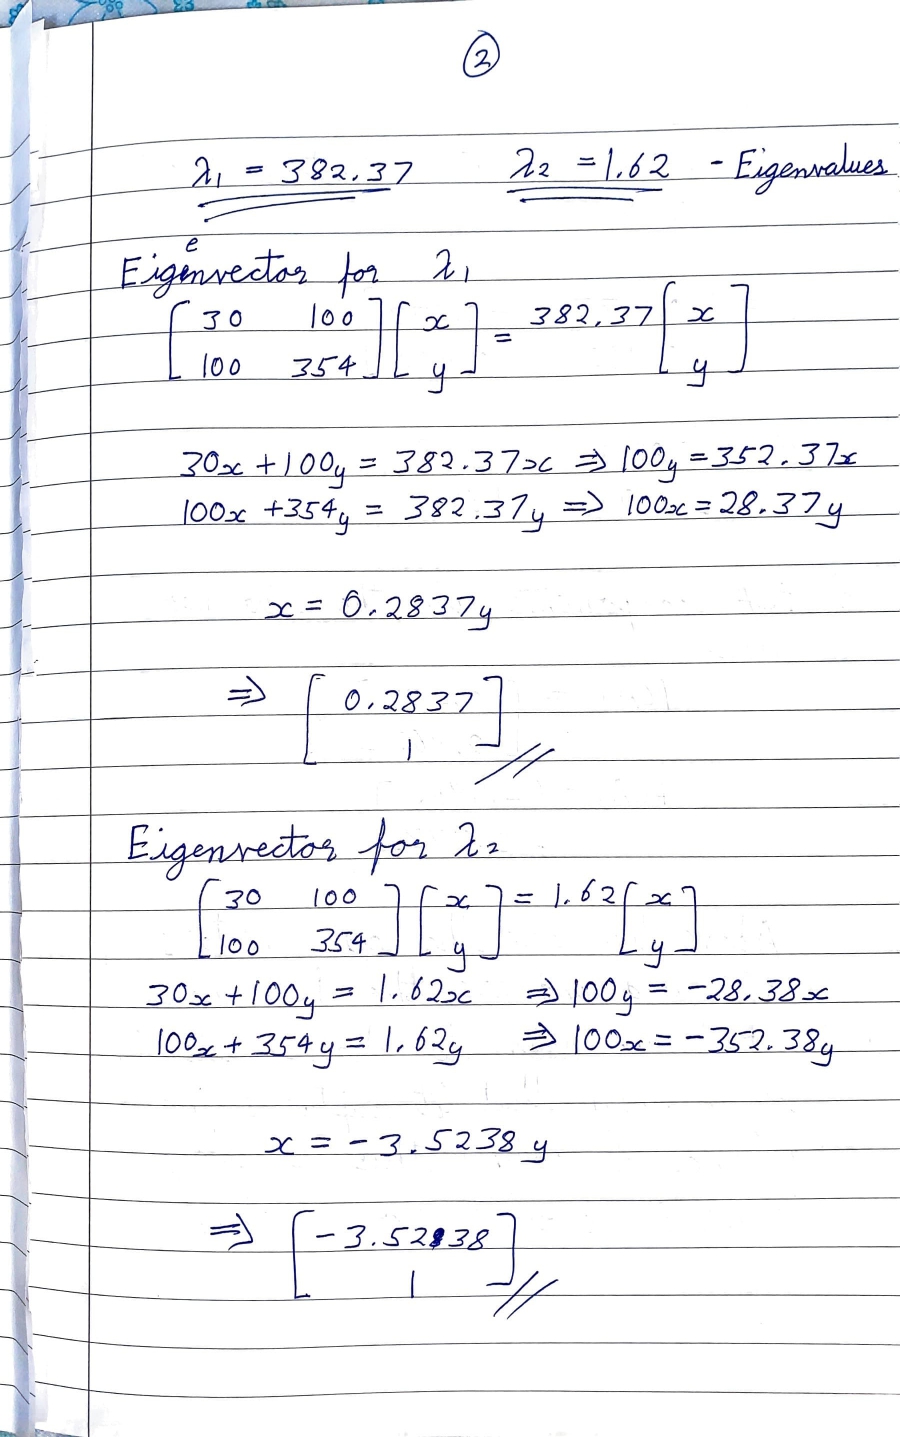 ②
λ₁ = 382.37 λ₂ = 1.62 - Eigenvalues
Eigenvector for λ₁
[30 100] [x] = 382.37 [x]
[100 354] [y] [y]
30x + 100y = 382.37x ⇒ 100y = 352.37x
100x + 354y = 382.37y ⇒ 100x = 28.37y
x = 0.2837y
⇒ [0.2837]
[1] //
Eigenvector for λ₂
[30 100] [x] = 1.62 [x]
[100 354] [y] [y]
30x + 100y = 1.62x ⇒ 100y = -28.38x
100x + 354y = 1.62y ⇒ 100x = -352.38y
x = -3.5238y
⇒ [-3.5238]
[1] //